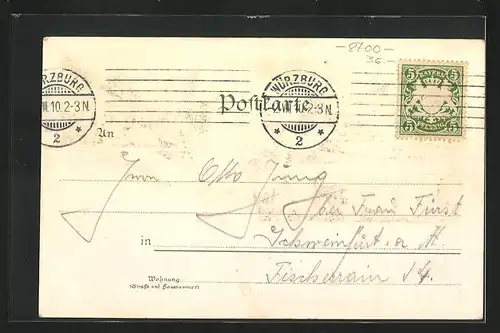 -8700-
36
WÜRZBURG
VIII.10.2-3N.
2
WÜRZBURG
VIII.10.2-3N.
2
5 BAYERN 5
5 5
Postkarte
An
Herrn Otto Jung
bei Frau Fürst
in Schweinfurt a. M.
Fischerrain 14.
Wohnung
(Straße und Hausnummer)